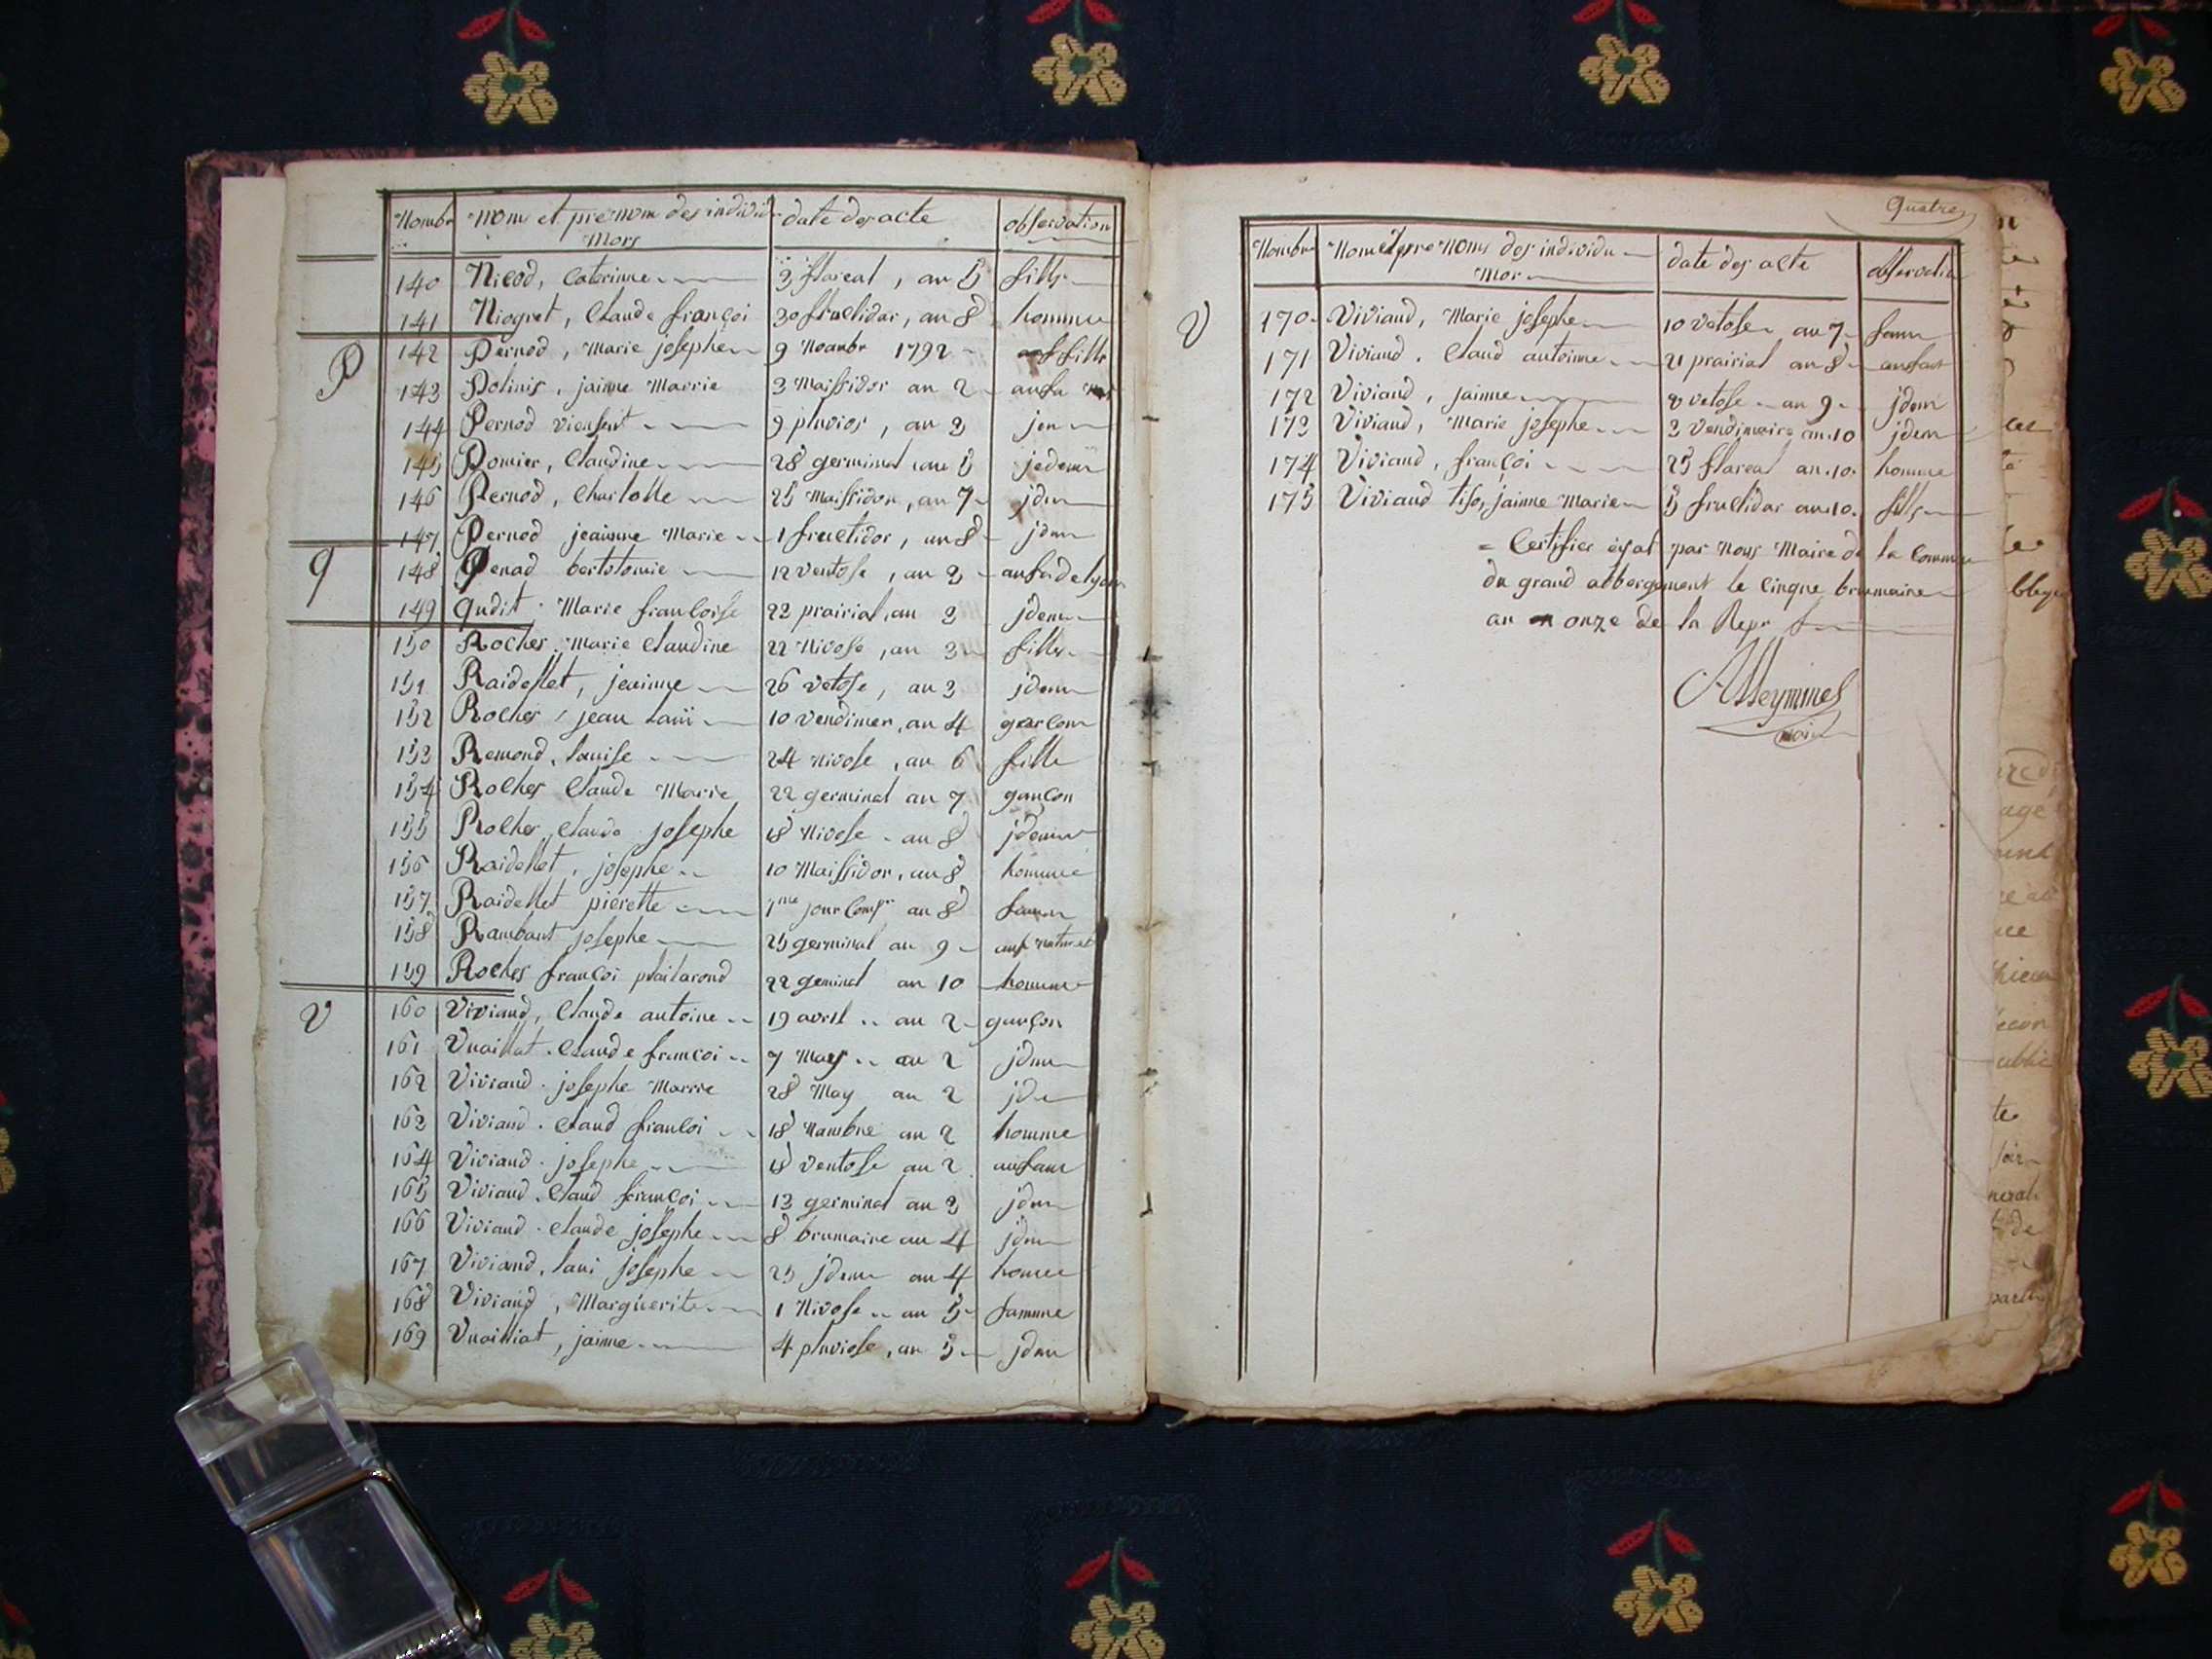 Nombr nom et prenom des individu date des acte observation
Mors
140 Nicod, Caterinne 3 flareal, an 5 fille
141 Niogret, Claude françoi 30 fructidor, an 8 homme
P
142 Pernod, Marie josephe 9 Noambr 1792 fille
143 Polinis, jainne Marrie 3 Maissidor an 2
144 Pernod 9 pluvios, an 3
145 Pomier, Claudine 28 germinal an 5 jedem
146 Pernod, Charlotte 25 Maissidor, an 7 jdem
147 Pernod jeainne Marie 1 fructidor, an 8 jdem
q
148 Penad bertolomie 12 ventose, an 3
149 qudit. Marie françoise 22 prairial, an 3 jdem
150 Rocher. Marie Claudine 22 Nivose, an 3 fille
151 Raidellet, jeainne 26 vetose, an 3 jdem
152 Rocher, jean Laui 10 vendimer, an 4 garcon
153 Remond, Lauise 24 nivose, an 6 fille
154 Rocher Claude Marie 22 germinal an 7 garçon
155 Rocher, Claude josephe 18 Nivose an 8 jdem
156 Raidellet, josephe 10 Maissidor, an 8 homme
157 Raidellet pierette 1me jour Comp an 8 famm
158 Rambaut josephe 25 germinal an 9 anf naturel
159 Rocher françoi 22 geminal an 10 homme
V
160 Viviand, Claude antoine 19 avril an 2 garçon
161 Vuaillat. Claude françoi 7 May an 2 jdem
162 Viviand. josephe Marrie 28 May an 2 jde
163 Viviand. Claud françoi 18 Nambre an 2 homme
164 Viviand. josephe 18 ventose an 2 anfant
165 Viviand. Claud françoi 13 germinal an 3 jdem
166 Viviand. Claude josephe 8 brumaire an 4 jdem
167 Viviand, Laui josephe 25 jdem an 4 homme
168 Viviand, Marguerite 1 Nivose an 5 famme
169 Vuailliat, jainne 4 pluviose, an 5 jdem
Quatre
Nombre Nom et pre Noms des individu date des acte observation
Mor
V
170 Viviand, Marie josephe 10 vetose an 7 famm
171 Viviand. Claud antoinne 21 prairial an 8 anfant
172 Viviand, jainne 8 vetose an 9 jdem
173 Viviand, Marie josephe 3 vendimaire an 10 jdem
174 Viviand, françoi 25 flareal an 10 homme
175 Viviand jainne Marie 5 fructidor an 10 fille
Certifier par Nous Maire de la Commune
du grand abbergement le cinque brumaire
an onze de la Repr